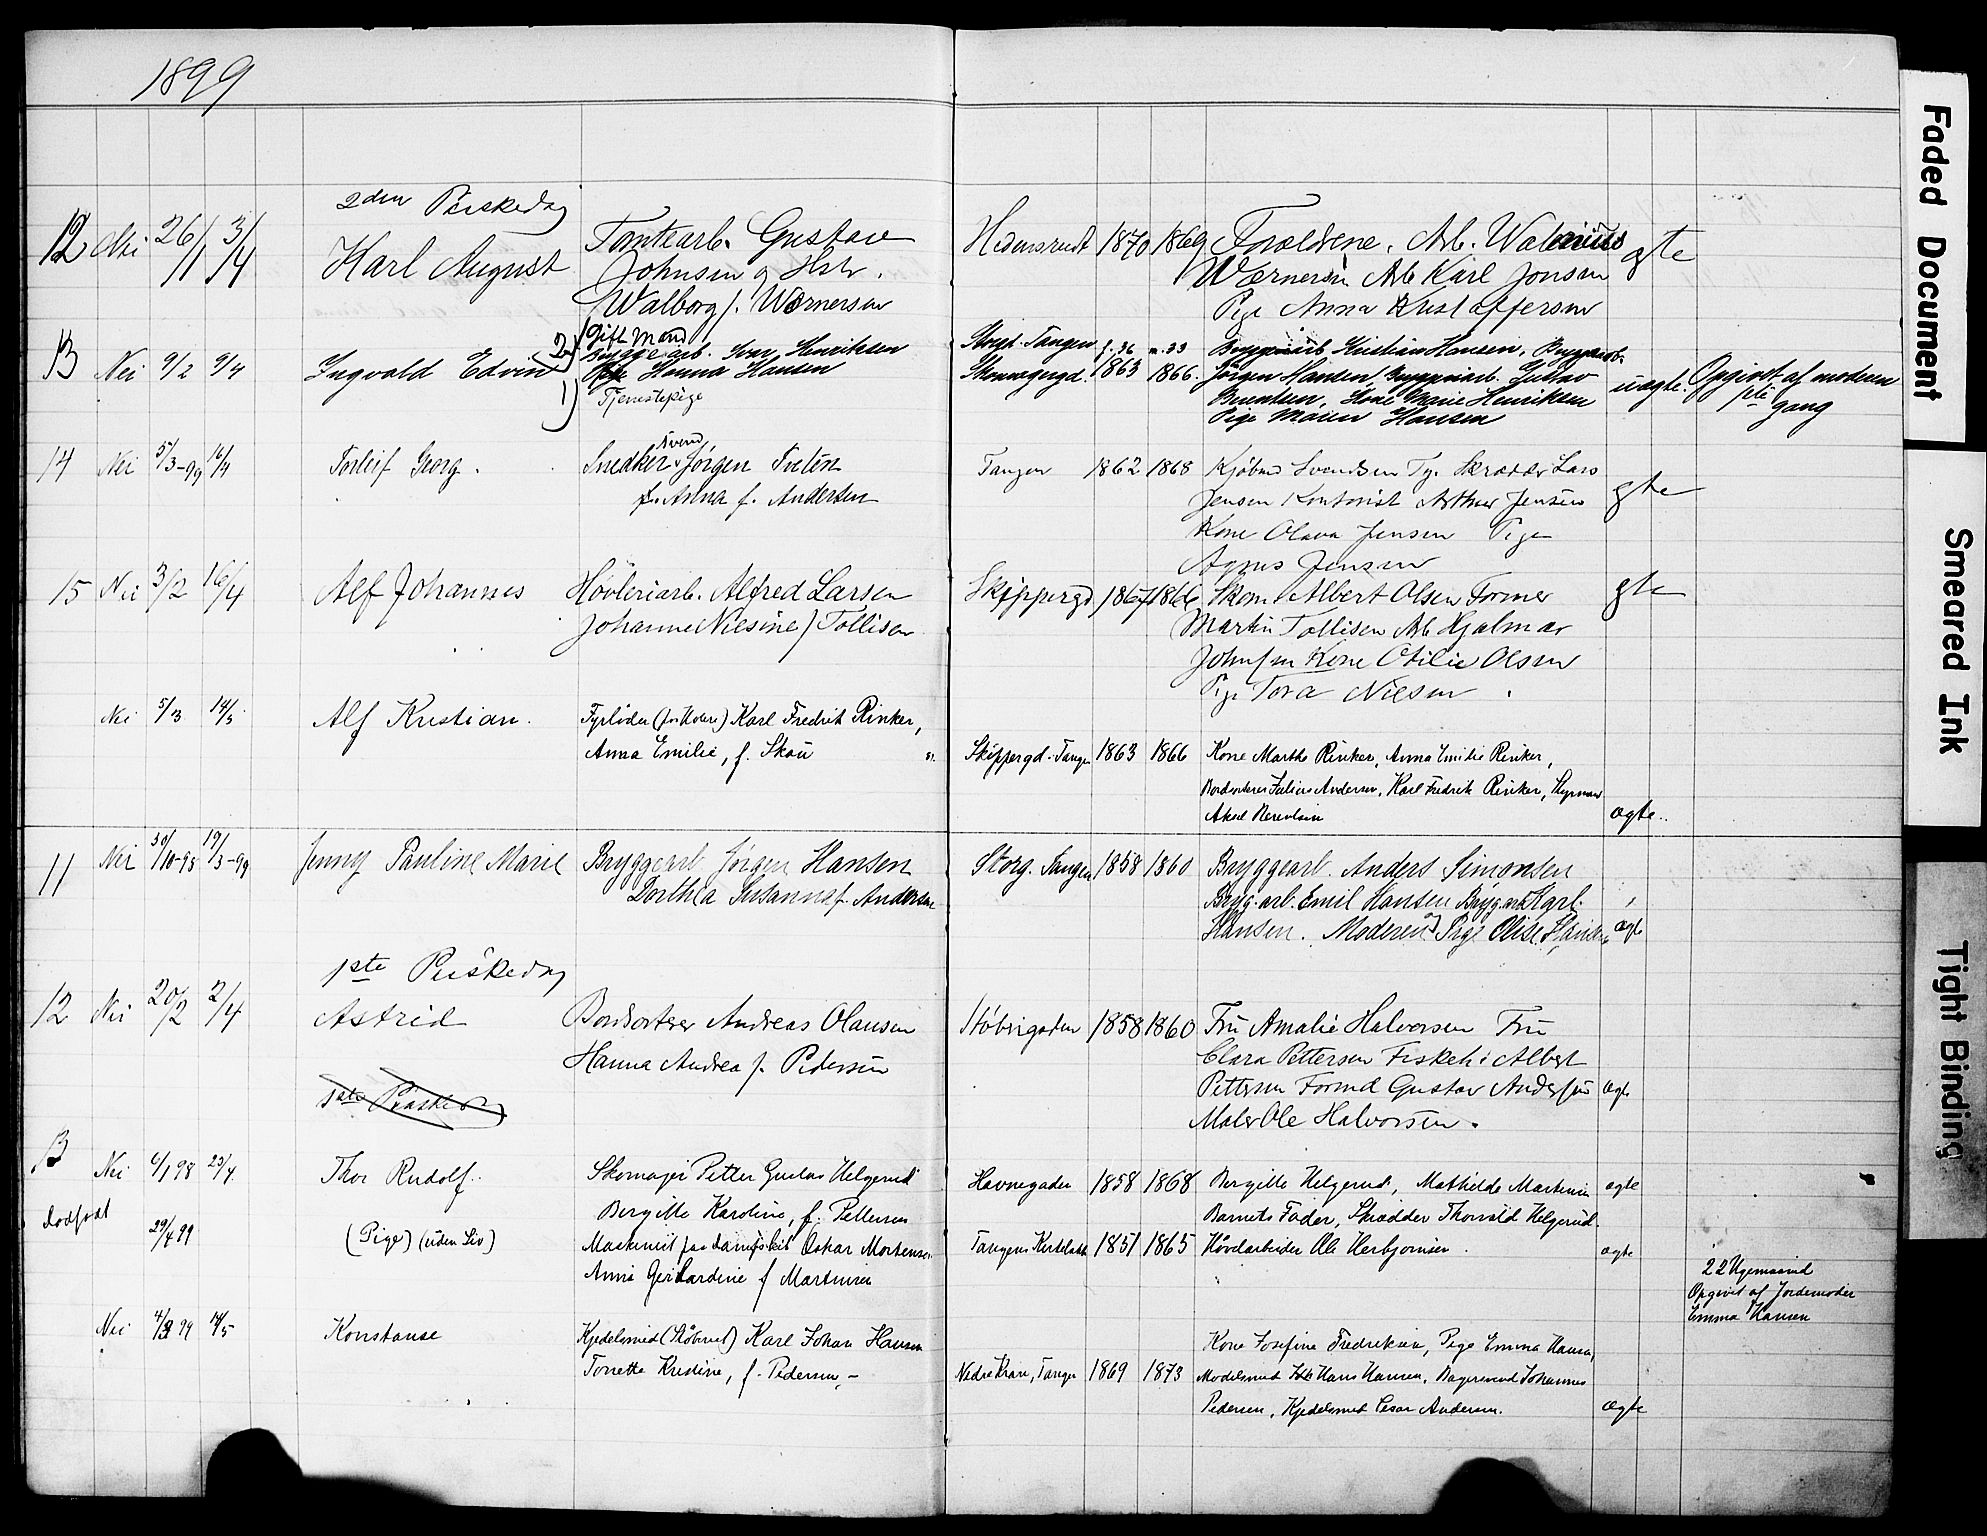 1899
2den Påskedag
12 Nei 26/1 3/4 Karl August
Tomtearb. Gustav
Johnsen og Hstr.
Walborg f. Wærnersen
1870 1869 Forældrene. Arb. Walenius
Wærnersen Arb Karl Jonsen
Pige Anna Kristoffersen
ægte
13 Nei 9/2 9/4 Ingvald Edvin
2) Gift Mand
Bryggearb. Ivar Henriksen
1) Pige Hanna Hansen
Tjenestepige
Storgt. Tangen f. 36 m. 33
1863 1866
Bryggearb Kristian Hansen, Bryggearb.
Jörgen Hansen, Bryggearb. Gustav
Berentsen, Kone Marie Henriksen
Pige Maren Hansen
uægte. Opgivet af moderen
1ste gang
14 Nei 5/3-99 16/4 Torleif Georg.
Snedkersvend Jörgen
f. Anna f. Andersen
Tangen 1862 1868
Svendsen Skrædder Lars
Jensen Kontorist Arthur Jensen
Kone Olava Jensen Pige
Agnes Jensen
ægte
15 Nei 3/2 16/4 Alf Johannes
Høvleriarb. Alfred Larsen
Johanne Nilsine f Tollisen
Skippergd 1867 1866
Skom Albert Olsen Former
Martin Tollisen Arb Hjalmar
Johnsen Kone Otilie Olsen
Pige Tora Nilsen
ægte
Nei 5/3 14/5 Alf Kristian.
Karl Fredrik Rinker,
Anna Emilie, f. Skau
Skippergd. Tangen 1863 1866
Kone Marthe Rinker, Anna Emilie Rinker,
Bordsorterer Julius Andersen, Karl Fredrik Rinker, Styrmand
Aksel Berentsen
ægte..
11 Nei 30/10-98 19/3-99 Jenny Pauline Marie
Bryggearb Jörgen Hansen
Dorthea Susanna f. Andersen
Storg. Tangen 1858 1860
Bryggearb. Anders Simonsen
Bryg.arb. Emil Hansen Bryg.arb Karl
Hansen. Moderen Pige Olise Hansen
ægte
1ste Påskedag
12 Nei 20/2 2/4 Astrid
Bordsorterer Andreas Olausen
Hanna Andrea f. Pedersen
Støbrigaden 1858 1860
Fru Amalie Halvorsen Fru
Clara Pettersen Fiskeh. Albert
Pettersen Formd Gustav Andersen
Maler Ole Halvorsen.
ægte
1ste Påskedag
13 Nei 6/1 98 23/4 Thor Rudolf.
Skomager Petter Gustav Helgerud
Bergitte Karoline, f. Pettersen
Havnegaden 1858 1868
Bergitte Helgerud, Mathilde Martinsen
Barnets Fader, Skrædder Thorvald Helgerud.
ægte
dødfødt 29/4 99 (Pige) (uden Liv)
Maskinist paa dampskib Oskar Mortensen
Anna Gerhardine f Martinsen
Tangens 1851 1865
Høvlarbeider Ole Herbjornsen.
ægte
22 Uger
Opgivet af Jordemoder
Emma Hansen
Nei 4/3 99 14/5 Konstanse
Kjedelsmed Karl Johan Hansen
Torette Kristine, f. Pedersen, -
Nedre Tangen 1869 1873
Kone Josefine Fredriksen, Pige Emma Hansen,
Modelsmed Hans Hansen, Bagersvend Johannes
Pedersen, Kjedelsmed Cesar Andersen.
ægte
Faded Document
Smeared Ink
Tight Binding